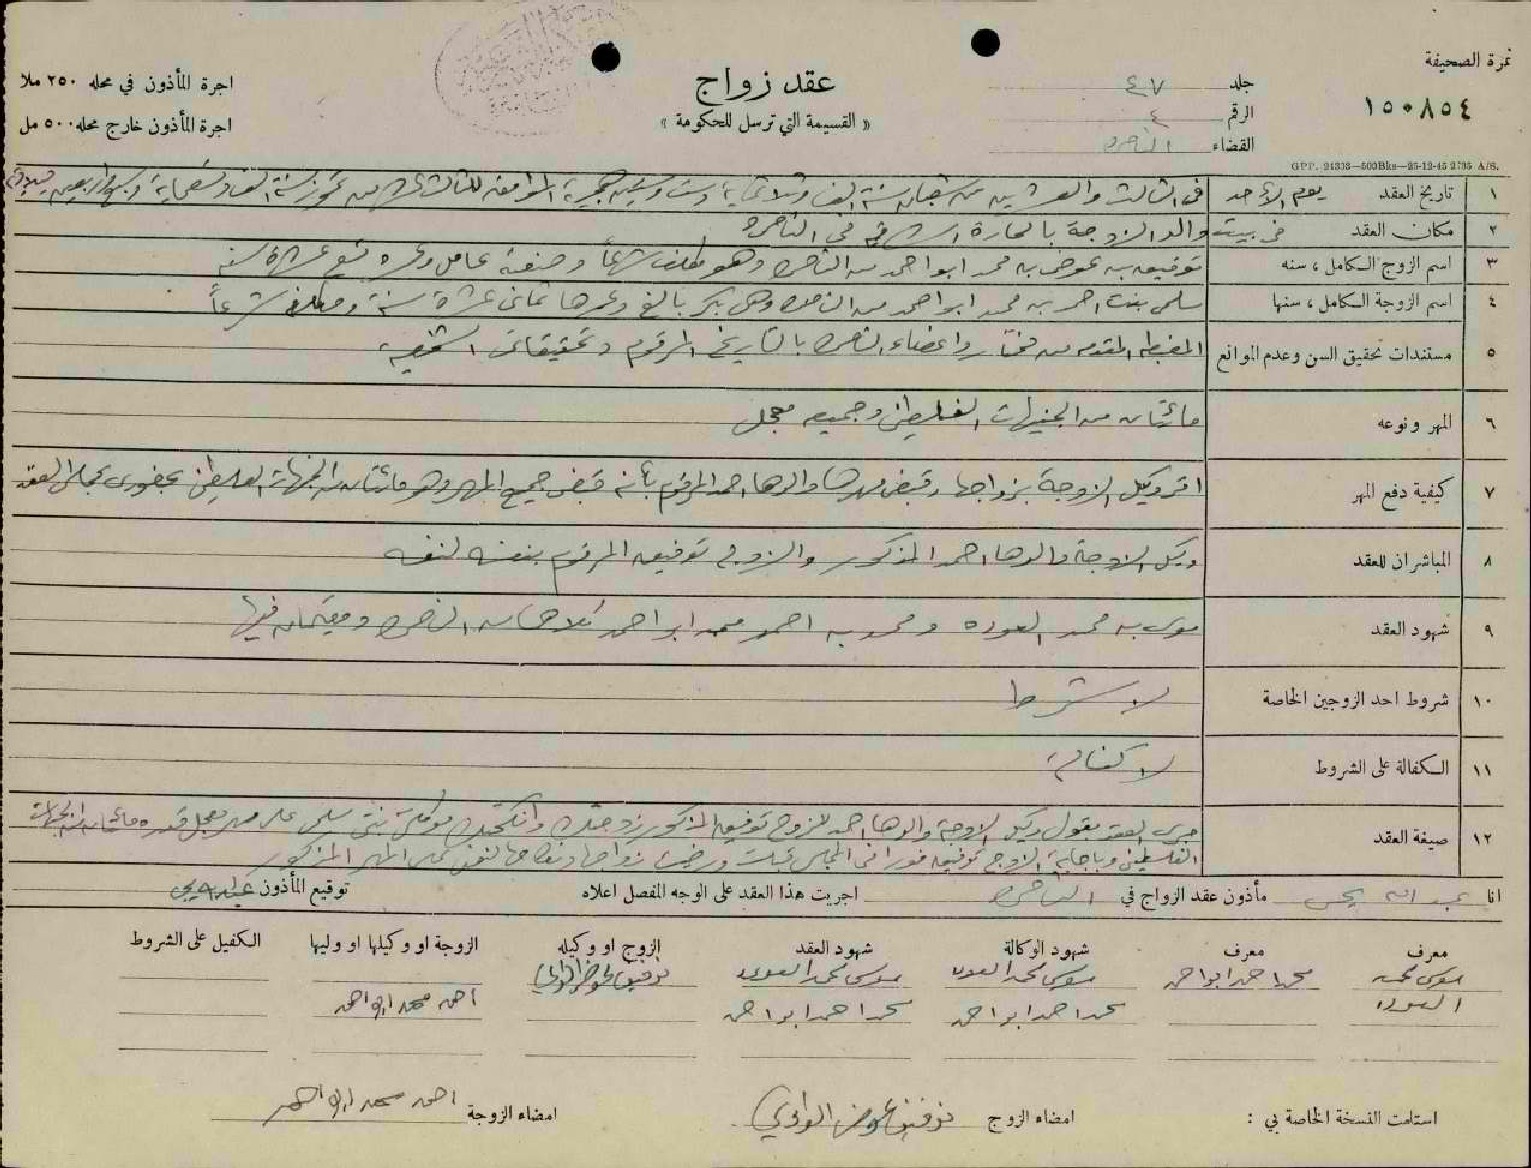 نمرة الصحيفة
١٥٠٨٥٤
جلد ٤٧
الرقم ٤
القضاء الناصرة
عقد زواج
« القسيمة التي ترسل للحكومة »
اجرة المأذون في محله ٢٥٠ ملا
اجرة المأذون خارج محله ٥٠٠ مل
G.P.P. 24333—500Bks—25-12-45 2795 A/S.
١ تاريخ العقد يوم الاحد في الثالث والعشرين من شعبان سنة الف وثلاثماية وست وستين هجرية الموافقة للثالث عشر من تموز سنة الف وتسعماية وسبع واربعين ميلادية
٢ مكان العقد في بيت والد الزوجة بالحارة الشرقية في الناصرة
٣ اسم الزوج الكامل ، سنه توفيق بن عوض بن محمد ابو احمد من الناصرة وهو مكلف شرعاً وصنعته عامل وعمره تسع عشرة سنة
٤ اسم الزوجة الكامل ، سنها سلمى بنت احمد بن محمد ابو احمد من الناصرة وهي بكر بالغ وعمرها ثماني عشرة سنة ومكلفة شرعاً
٥ مستندات تحقيق السن وعدم الموانع المضبطة المقدمة من مختار واعضاء الناصرة بالتاريخ المرقوم وتحقيقاتي الشخصية
٦ المهر ونوعه مائتان من الجنيهات الفلسطيني وجميعه معجل
٧ كيفية دفع المهر اقر وكيل الزوجة بزواجها وقبض مهرها والدها احمد المرقوم بأنه قبض جميع المهر وهو مائتان من الجنيهات الفلسطيني بحضوري بمجلس العقد
٨ المباشران للعقد وكيل الزوجة والدها احمد المذكور والزوج توفيق المرقوم بنفسه لنفسه
٩ شهود العقد موسى بن محمد العوده ومحمد بن احمد محمد ابو احمد كلاهما من الناصرة ومقيمان فيها
١٠ شروط احد الزوجين الخاصة لا شرط
١١ الكفالة على الشروط لا كفالة
١٢ صيغة العقد جرى العقد بقول وكيل الزوجة والدها احمد للزوج توفيق المذكور زوجتك وانكحتك موكلتي بنتي سلمى على مهر معجل قدره مائتان من الجنيهات
الفلسطيني وباجابة الزوج توفيق فورا في المجلس قبلت ورضيت زواجها ونكاحها لنفسي على المهر المذكور
انا عبد الله يحيى مأذون عقد الزواج في الناصرة اجريت هذا العقد على الوجه المفصل اعلاه توقيع المأذون
معرف معرف شهود الوكالة شهود العقد الزوج او وكيله الزوجة او وكيلها او وليها الكفيل على الشروط
موسى محمد محمد احمد ابو احمد موسى محمد العوده موسى محمد العوده توفيق عوض الوادي
العوده محمد احمد ابو احمد محمد احمد ابو احمد احمد محمد ابو احمد
استلمت النسخة الخاصة بي : امضاء الزوج توفيق عوض الوادي امضاء الزوجة احمد محمد ابو احمد